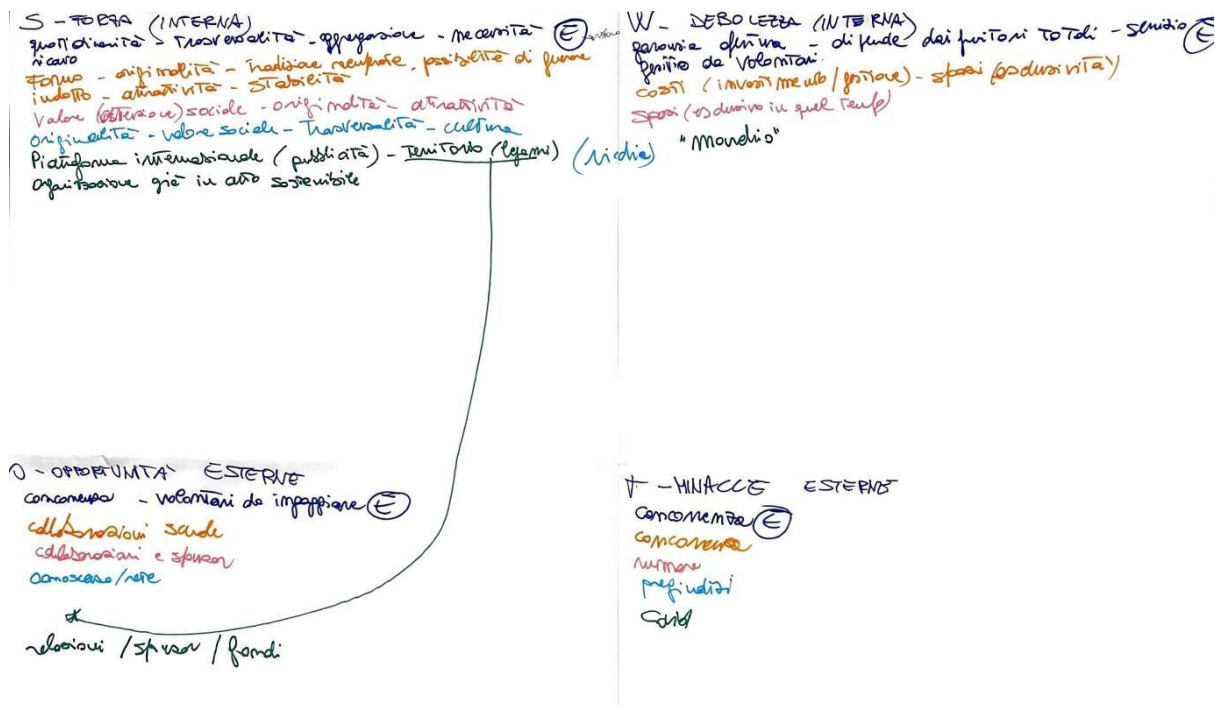 S - FORZA (INTERNA)
quotidianità - trasversalità - aggregazione - necessità E
ricavo
Forno - originalità - tradizione recuperare, possibilità di
indotto - attrattività - stabilità
Valore (attrazione) sociale - originalità - attrattività
originalità - valore sociale - trasversalità - cultura
Piattaforma internazionale (pubblicità) - Territorio (legami) (nicchia)
organizzazione già in atto sostenibile
W - DEBOLEZZA (INTERNA)
garanzia apertura - dipende dai fruitori totali - servizio E
gestito da volontari
costi (investimento/gestione) - spazi (esclusività)
spazi (esclusivo in quel tempo)
O - OPPORTUNITA' ESTERNE
concorrenza - volontari da ingaggiare E
collaborazioni scuole
collaborazioni e sponsor
conoscenze/rete
relazioni / sponsor / fondi
T - MINACCE ESTERNE
concorrenza E
concorrenza
rumore
pregiudizi
Covid